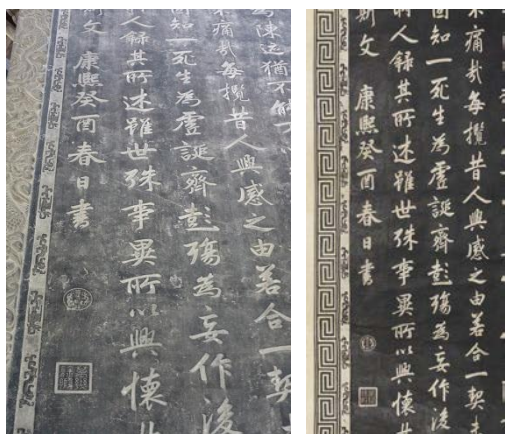 陳迹猶不能
痛哉每攬昔人興感之由若合一契
固知一死生為虛誕齊彭殤為妄作後
人錄其所述雖世殊事異所以興懷其
斯文 康熙癸酉春日書
痛哉每攬昔人興感之由若合一契未
固知一死生為虛誕齊彭殤為妄作後
人錄其所述雖世殊事異所以興懷其
斯文 康熙癸酉春日書